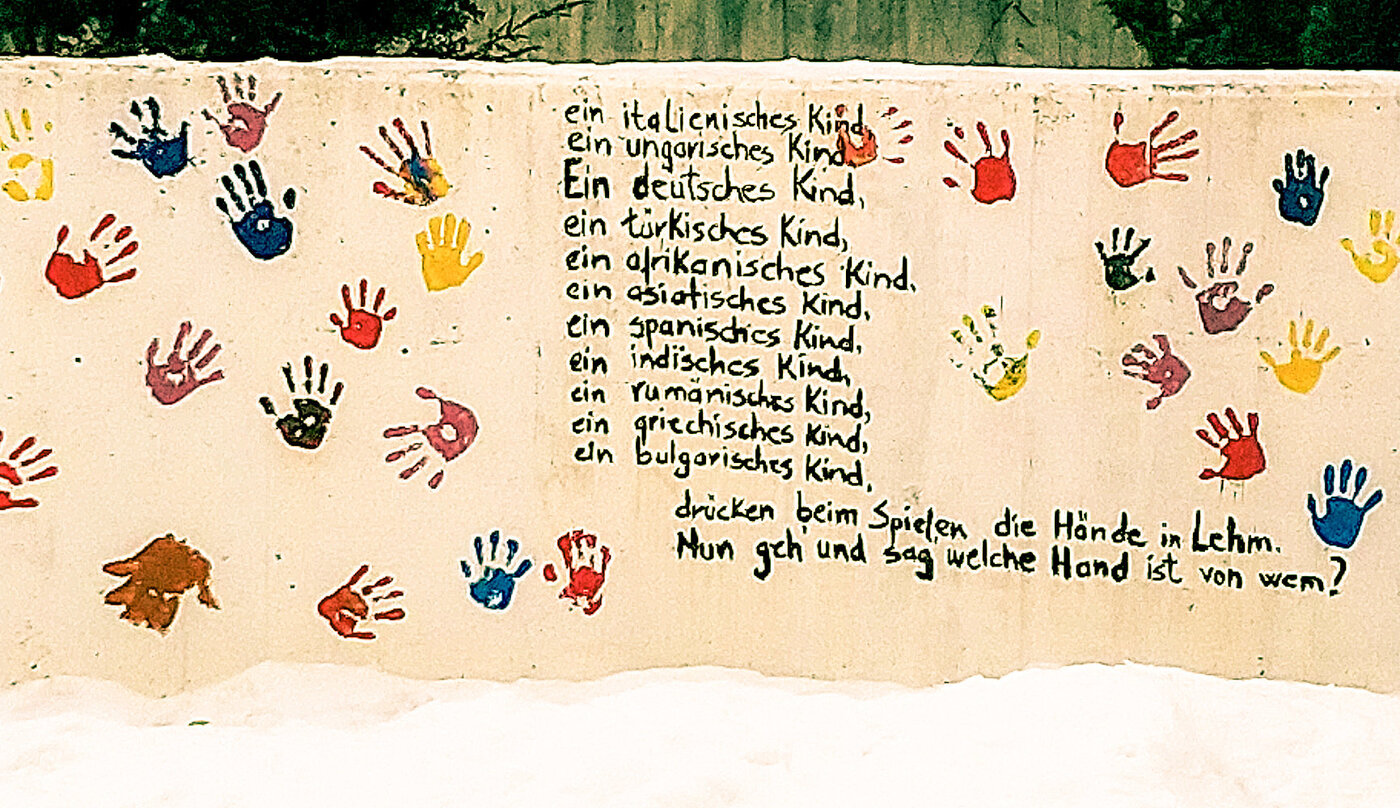 ein italienisches Kind,
ein ungarisches Kind,
Ein deutsches Kind,
ein türkisches Kind,
ein afrikanisches Kind,
ein asiatisches Kind,
ein spanisches Kind,
ein indisches Kind,
ein rumänisches Kind,
ein griechisches Kind,
ein bulgarisches Kind,
drücken beim Spielen die Hände in Lehm.
Nun geh und sag welche Hand ist von wem?